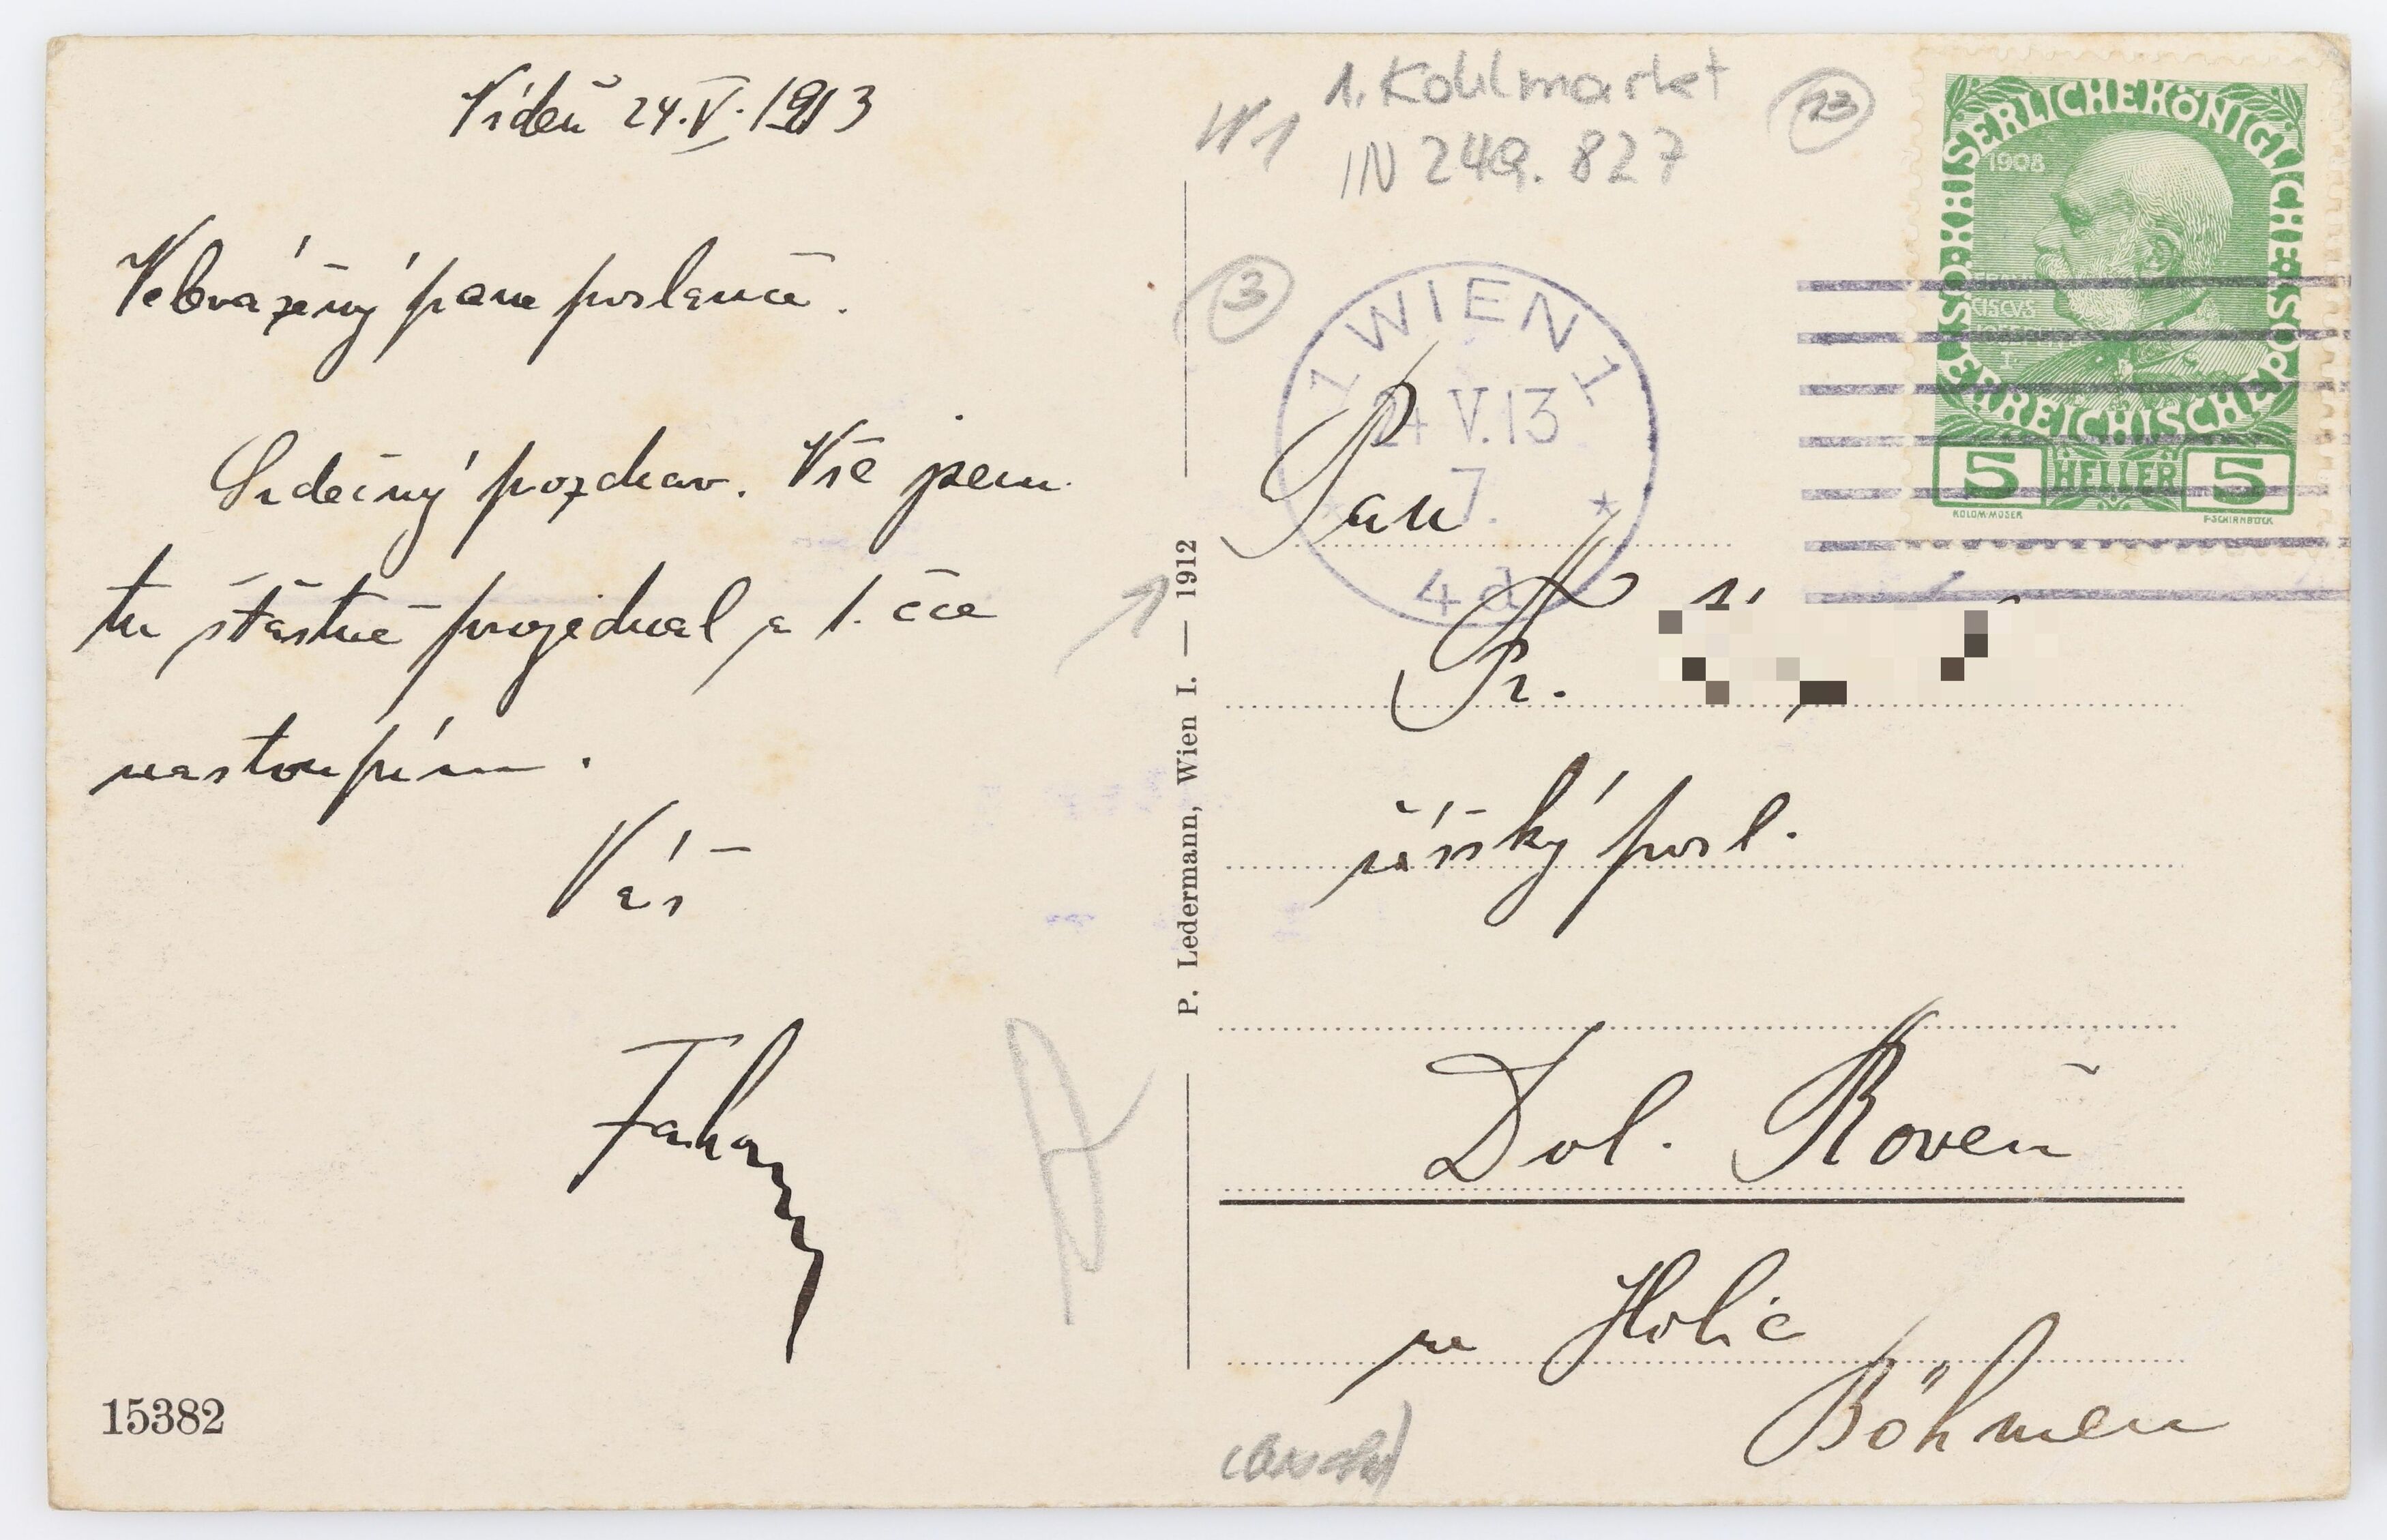 Vídeň 24.V.1913
Velevážený pane poslanče.
Srdečný pozdrav. Vše jsem
tu šťastně projednal a 1. čce
nastoupím.
Váš
15382
P. Ledermann, Wien I. — 1912
W1
1. Kohlmarkt
IN 249.827
13
3
1 WIEN 1
24 V.13
7.
* *
4d
KAISERLICHE KÖNIGLICHE
ÖSTERREICHISCHE POST
1908
5 HELLER 5
KOLOM·MOSER
F·SCHIRNBÖCK
Pan
Fr.
říšský posl.
Dol. Roveň
u Holic
Böhmen